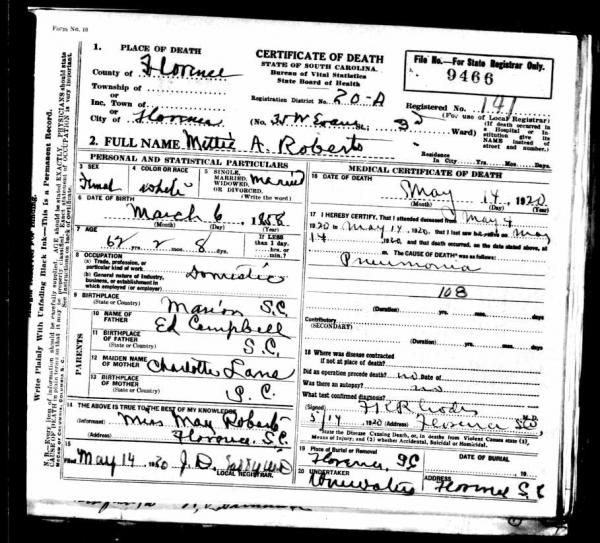 Form No. 10
1. PLACE OF DEATH
County of Florence
Township of
or
Inc. Town of
or
City of Florence
CERTIFICATE OF DEATH
STATE OF SOUTH CAROLINA.
Bureau of Vital Statistics
State Board of Health
Registration District No. 20-A
(No. W Evans St.; 3 Ward)
File No.—For State Registrar Only.
9466
Registered No. 141
(For use of Local Registrar)
(If death occurred in a Hospital or Institution give its NAME instead of street and number.)
2. FULL NAME Mittie A. Roberts
Residence
In City Yrs. Mos. Days.
PERSONAL AND STATISTICAL PARTICULARS
3 SEX
Femal
4 COLOR OR RACE
White
5 SINGLE, MARRIED, WIDOWED, OR DIVORCED. Married
(Write the word)
6 DATE OF BIRTH
March 6, 1858
(Month) (Day) (Year)
7 AGE
62 yrs. 2 mos. 8 ds.
If LESS than 1 day, hrs. or min.?
8 OCCUPATION
(a) Trade, profession, or particular kind of work
Domestic
(b) General nature of industry, business, or establishment in which employed (or employer)
9 BIRTHPLACE
(State or Country)
Marion S.C.
PARENTS
10 NAME OF FATHER
Ed Campbell
11 BIRTHPLACE OF FATHER
(State or Country)
S.C.
12 MAIDEN NAME OF MOTHER
Charlotte Lane
13 BIRTHPLACE OF MOTHER
(State or Country)
S.C.
14 THE ABOVE IS TRUE TO THE BEST OF MY KNOWLEDGE
(Informant) Miss May Roberts
(Address) Florence S.C.
15
May 14 1920 J.D.
LOCAL REGISTRAR.
MEDICAL CERTIFICATE OF DEATH
16 DATE OF DEATH
May 14, 1920
(Month) (Day) (Year)
17 I HEREBY CERTIFY, That I attended deceased from May 4
1920 to May 14, 1920, that I last saw h alive on May
14, 1920, and that death occurred, on the date stated above, at
m. The CAUSE OF DEATH* was as follows:
Pneumonia
108
(Duration) yrs. mos. days
Contributory
(SECONDARY)
(Duration) yrs. mos. days
18 Where was disease contracted
if not at place of death?
Did an operation precede death? no Date of
Was there an autopsy? no
What test confirmed diagnosis?
(Signed) Rhodes M.D.
5/14 1920 (Address) Florence SC
State the Disease Causing Death, or, in deaths from Violent Causes state (1) Means of Injury; and (2) whether Accidental, Suicidal or Homicidal.
19 Place of Burial or Removal
Florence, SC
DATE OF BURIAL
19
20 UNDERTAKER
ADDRESS
Florence S.C
Write Plainly With Unfading Black Ink—This is a Permanent Record.